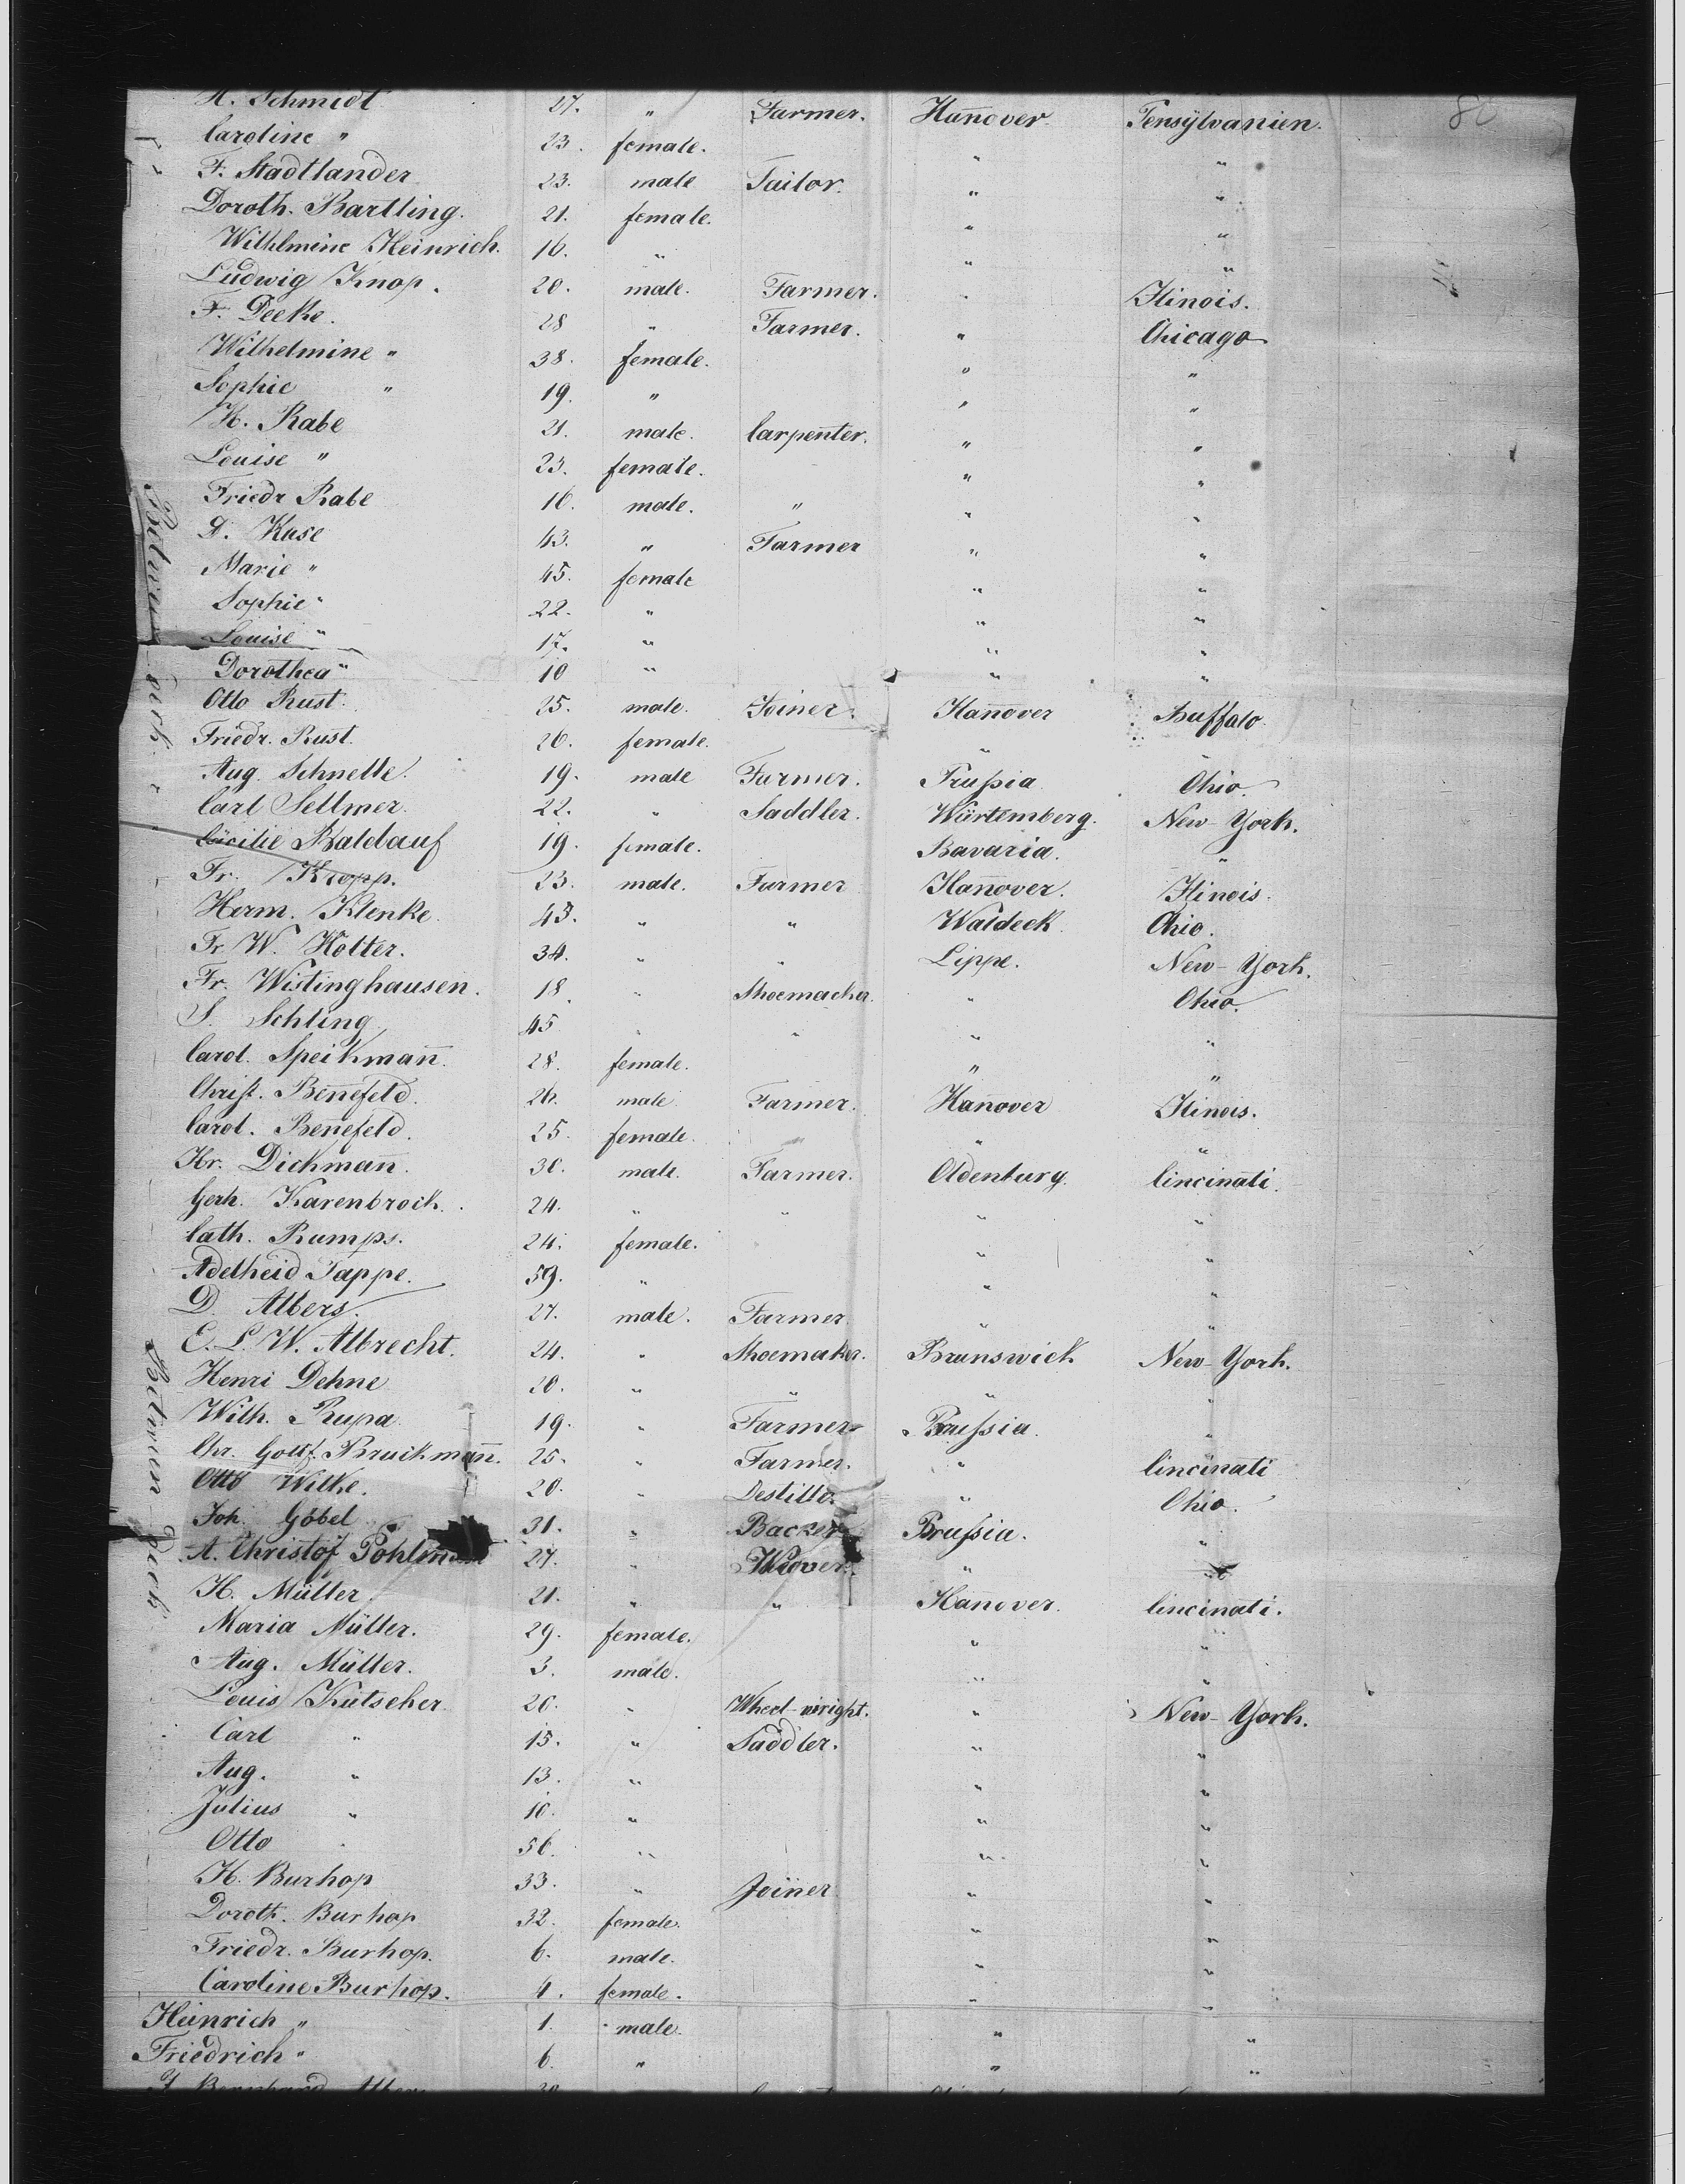 80
H. Schmidt 27. " Farmer. Hannover Pensylvanien.
Caroline " 23. female. " "
F. Stadtlander 23. male Tailor. " "
Doroth. Bartling. 21. female. " "
Wilhelmine Heinrich. 16. " " "
Ludwig Knop. 20. male. Farmer. " Ilinois.
F. Deeke. 28 " Farmer. " Chicago
Wilhelmine " 38. female. " "
Sophie " 19. " " "
H. Rabe 21. male. Carpenter. " "
Louise " 23. female. " "
Friedr Rabe 16. male. " " "
D. Kuse 43. " Farmer " "
Marie " 45. female " "
Sophie " 22. " " "
Louise " 17. " " "
Dorothea " 10 " " "
Otto Rust. 25. male. Joiner. Hannover Buffalo.
Friedr. Rust. 26. female. "
Aug. Schnelle. 19. male Farmer. Prussia Ohio.
Carl Sellmer. 22. " Saddler. Würtemberg. New-York.
Cäcilie Baldauf 19. female. Bavaria. "
Fr. Kropp. 23. male. Farmer Hannover. Ilinois.
Herm. Klenke. 43. " " Waldeck Ohio.
Fr. W. Kolter. 34. " " Lippe. New-York.
Fr. Wistinghausen. 18. " Shoemacher. " Ohio.
S. Schling 45 " " " "
Carol. Speikmann. 28. female. " "
Christ. Bennefeld. 26. male Farmer. Hannover Ilinois.
Carol. Bennefeld. 25. female. " "
Hr. Dickmann. 30. male. Farmer. Oldenburg. Cincinati.
Gerh. Karenbrock. 24. " " " "
Cath. Rumps. 24. female. " "
Adelheid Tappe. 59. " " "
D. Albers. 27. male. Farmer. " "
E. L. W. Albrecht. 24. " Shoemaker. Brunswick New-York.
Henri Dehne 20. " " " "
Wilh. Rupa 19. " Farmer Prussia. "
Chr. Gottf. Bruckmann. 25. " Farmer. " Cincinati
Otto Wilke. 20. " Destillo. " Ohio.
Joh. Göbel 31. " Backer Prussia. "
A. Christof Pohlmann 27. " Weover. " "
H. Müller 21. " " Hannover. Cincinati.
Maria Müller. 29. female. " "
Aug. Müller. 3. male. " "
Louis Kutscher 20. " Wheel-wright. " New-York.
Carl " 15. " Saddler. " "
Aug. " 13. " " "
Julius " 10. " " "
Otto " 56. " " "
H. Burhop 33. " Joiner " "
Doroth. Burhop 32. female. " "
Friedr. Burhop. 6. male. " "
Caroline Burhop. 4. female. " "
Heinrich " 1. male. " "
Friedrich " 6. " " "
Between Deck